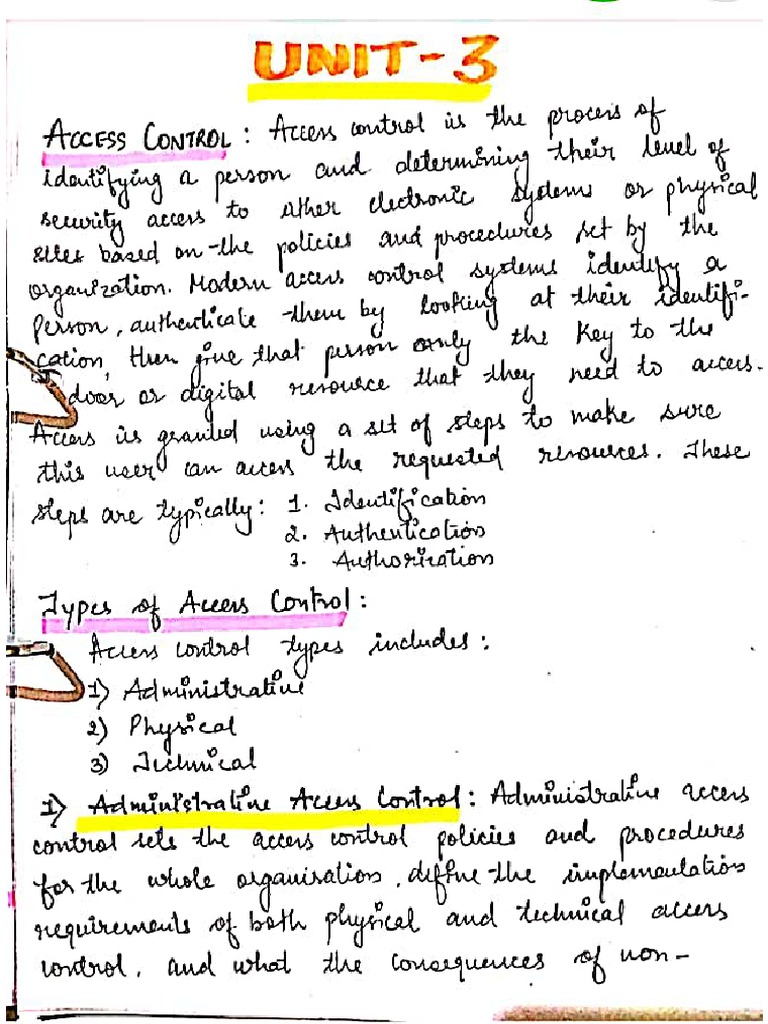 UNIT-3
ACCESS CONTROL : Access control is the process of
identifying a person and determining their level of
security access to either electronic systems or physical
sites based on the policies and procedures set by the
organization. Modern access control systems identify a
person, authenticate them by looking at their identifi-
cation, then give that person only the key to the
door or digital resource that they need to access.
Access is granted using a set of steps to make sure
this user can access the requested resources. These
steps are typically: 1. Identification
2. Authentication
3. Authorization
Types of Access Control :
Access control types includes :
1) Administrative
2) Physical
3) Technical
1) Administrative Access Control : Administrative access
control sets the access control policies and procedures
for the whole organisation, define the implementation
requirements of both physical and technical access
control, and what the consequences of non-